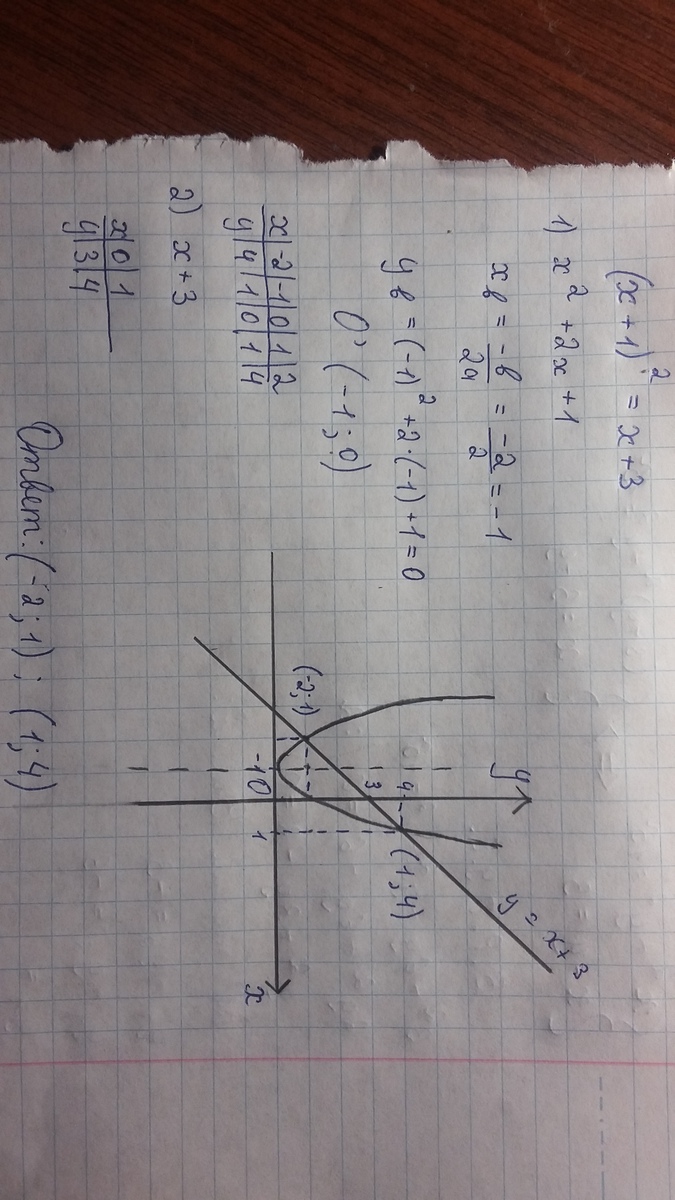 (x+1)² = x+3
1) x² + 2x + 1
xв = -в/2a = -2/2 = -1
yв = (-1)² + 2·(-1) + 1 = 0
O' (-1; 0)
x | -2 | -1 | 0 | 1 | 2
y | 4 | 1 | 0 | 1 | 4
2) x + 3
x | 0 | 1
y | 3 | 4
y
4
3
(-2; 1)
(1; 4)
y = x+3
-1 0
1
x
Ответ: (-2; 1) ; (1; 4)